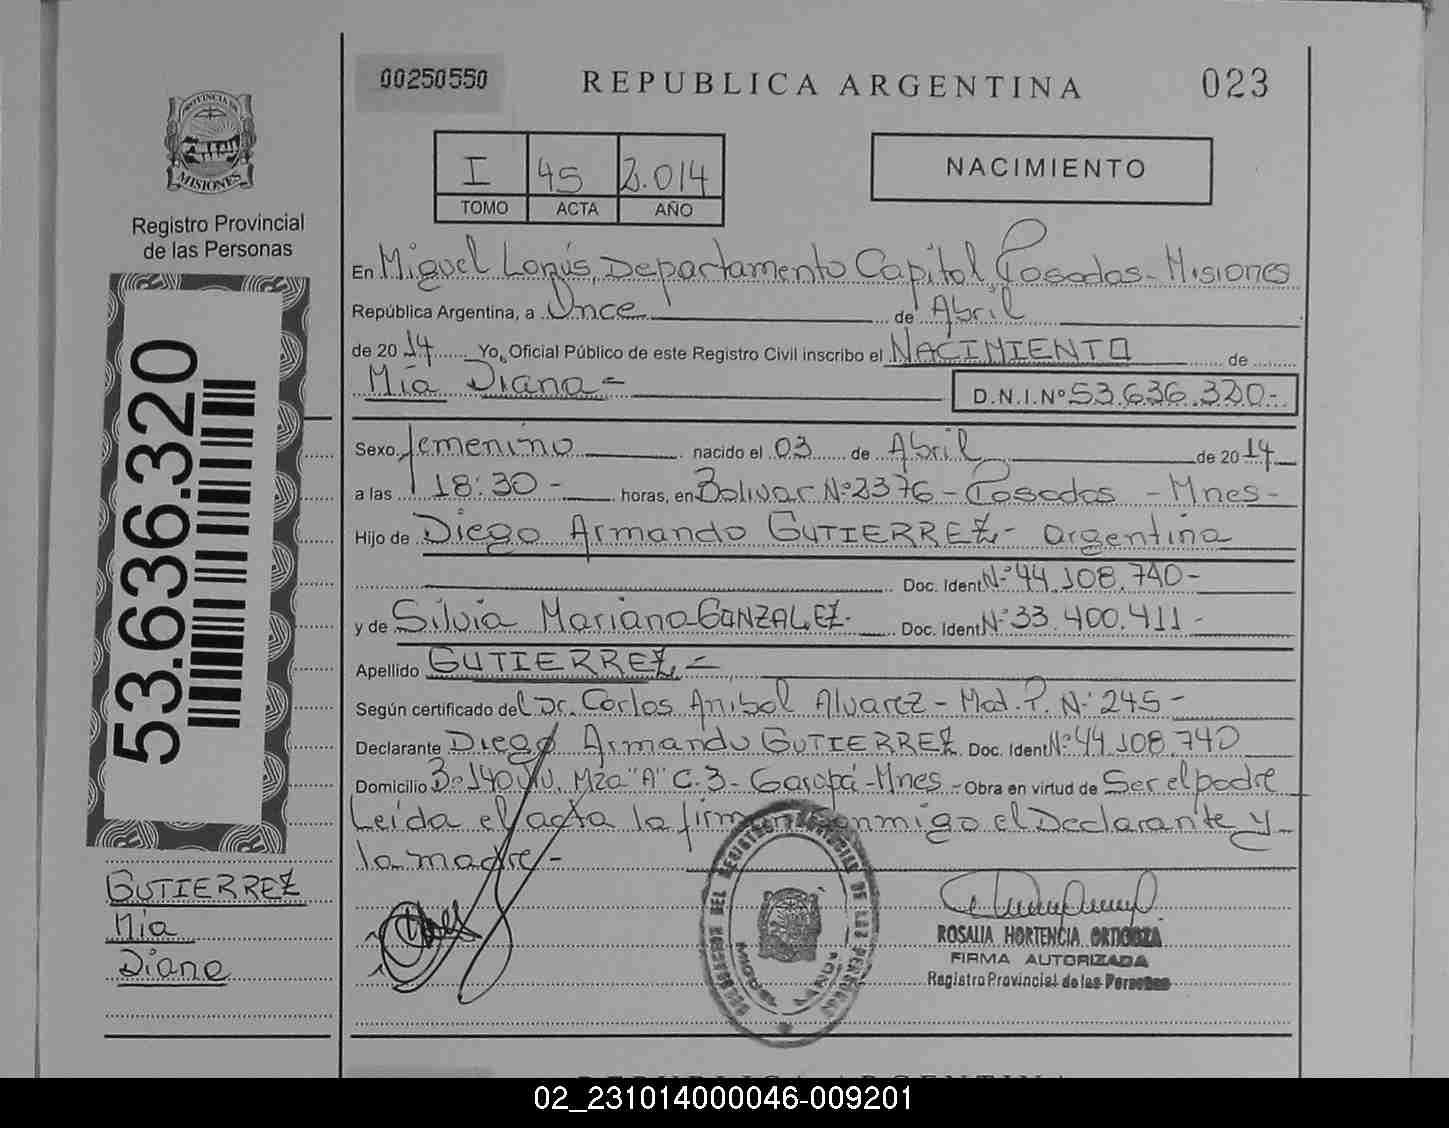 00250550
REPUBLICA ARGENTINA
023
PROVINCIA DE
MISIONES
Registro Provincial
de las Personas
I 45 2.014
TOMO ACTA AÑO
NACIMIENTO
En Miguel Lanús, Departamento Capital, Posadas - Misiones
República Argentina, a Once de Abril
de 2014 Yo, Oficial Público de este Registro Civil inscribo el NACIMIENTO de
Mía Diana =
D.N.I.Nº 53.636.320-
53.636.320
Sexo femenino nacido el 03 de Abril de 2014
a las 18:30 - horas, en Bolivar Nº 2376 - Posadas - Mnes -
Hijo de Diego Armando GUTIERREZ - argentina
Doc. Ident Nº 44.108.740 -
y de Silvia Mariana GONZALEZ - Doc. Ident Nº 33.400.411 -
Apellido GUTIERREZ =
Según certificado del Dr. Carlos Anibal Alvarez - Mat. P. Nº 245 -
Declarante Diego Armando GUTIERREZ Doc. Ident Nº 44.108.740
Domicilio Bº 140 VV. Mza "A" C. 3 - Garupá - Mnes - Obra en virtud de Ser el padre
Leída el acta la firman conmigo el Declarante y
la madre -
GUTIERREZ
Mía
Diana
ROSALIA HORTENCIA
FIRMA AUTORIZADA
Registro Provincial de las Personas
02_231014000046-009201